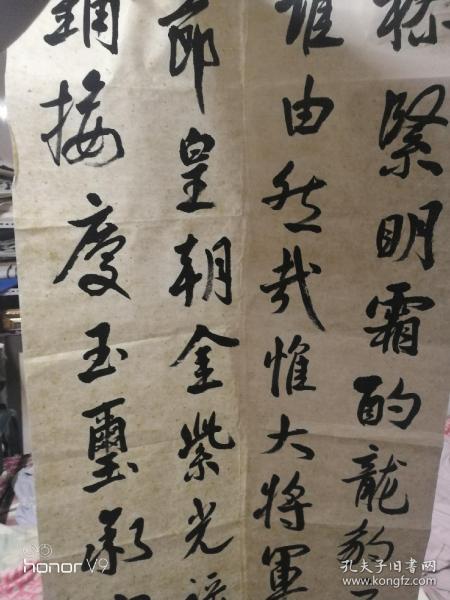 緊明霜酌龍豹
誰由然哉惟大將軍
節皇朝金紫光
接慶玉璽承
honor V9
孔夫子旧书网
www.kongfz.com